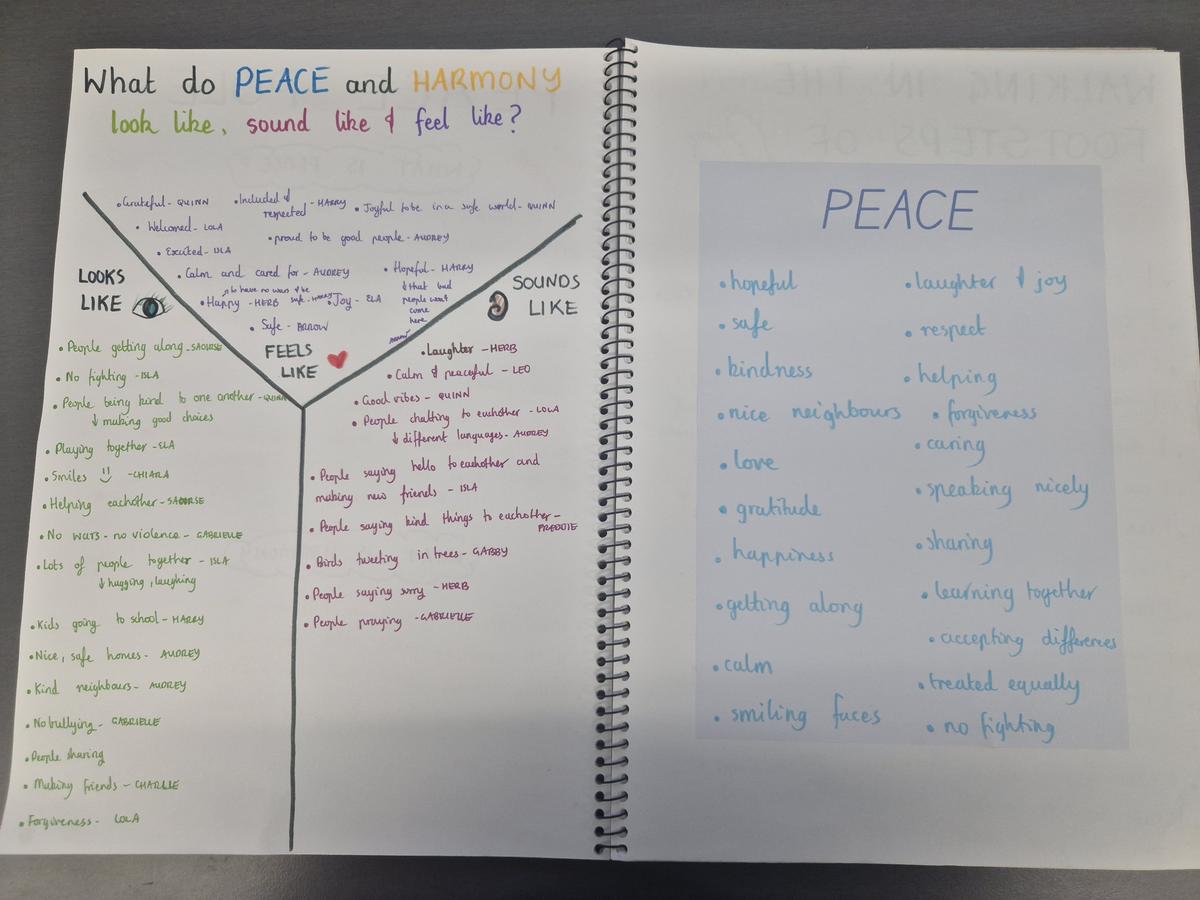 What do PEACE and HARMONY
look like, sound like & feel like?
• Grateful - QUINN
• Included & respected - HARRY
• Joyful to be in a safe world - QUINN
• Welcomed - LOLA
• proud to be good people - AUDREY
• Excited - ISLA
• Calm and cared for - AUDREY
• Hopeful - HARRY
↓ that bad
people wont
come
here
• Happy - HERB
to have no wars & be
safe - HARRY
• Joy - ELA
• Safe - ARROW
FEELS
LIKE
LOOKS
LIKE
• People getting along - SAOIRSE
• No fighting - ISLA
• People being kind to one another - QUINN
↓ making good choices
• Playing together - ELA
• Smiles - CHIARA
• Helping eachother - SAOIRSE
• No wars - no violence - GABRIELLE
• Lots of people together - ISLA
↓ hugging, laughing
• Kids going to school - HARRY
• Nice, safe homes - AUDREY
• Kind neighbours - AUDREY
• No bullying - GABRIELLE
• People sharing
• Making friends - CHARLIE
• Forgiveness - LOLA
SOUNDS
LIKE
• Laughter - HERB
• Calm & peaceful - LEO
• Good vibes - QUINN
• People chatting to eachother - LOLA
↓ different languages - AUDREY
• People saying hello to eachother and
making new friends - ISLA
• People saying kind things to eachother -
FREDDIE
• Birds tweeting in trees - GABBY
• People saying sorry - HERB
• People praying - GABRIELLE
PEACE
• hopeful
• safe
• kindness
• nice neighbours
• love
• gratitude
• happiness
• getting along
• calm
• smiling faces
• laughter & joy
• respect
• helping
• forgiveness
• caring
• speaking nicely
• sharing
• learning together
• accepting differences
• treated equally
• no fighting
WALKING IN THE
FOOTSTEPS OF
WHAT IS PEACE?